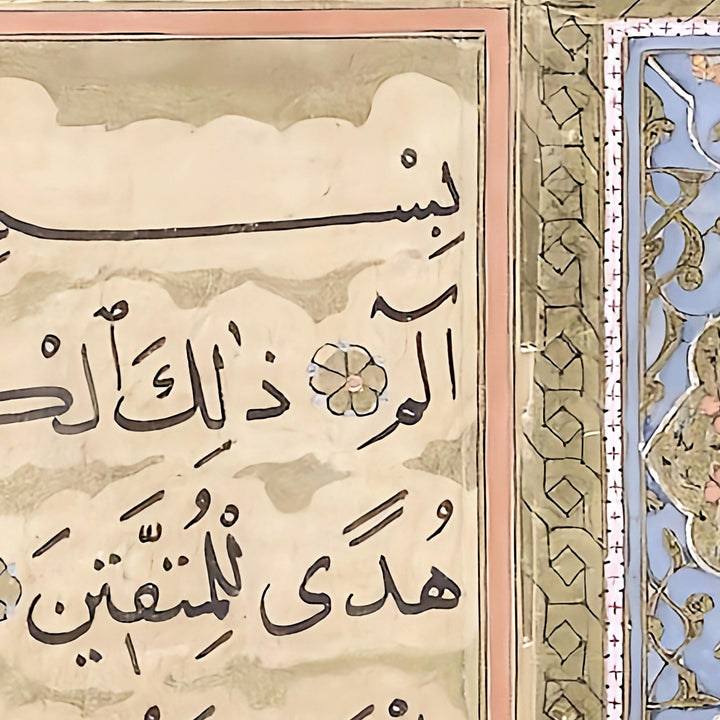 بِسْـ
الٓمٓ ذَٰلِكَ ٱلْكـ
هُدًى لِّلْمُتَّقِينَ